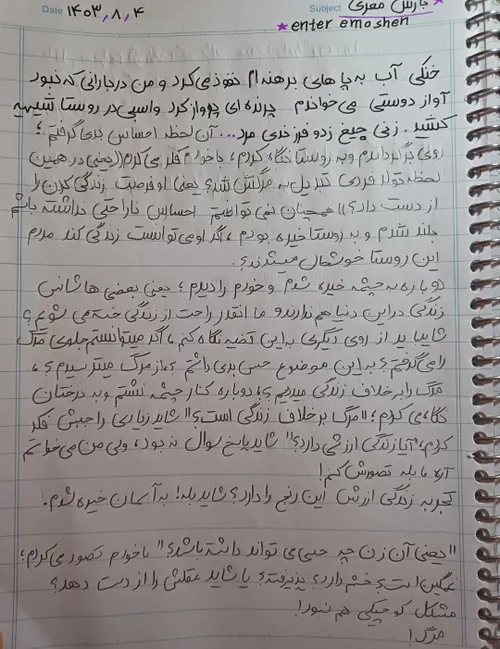 Date ۱۴۰۳٫۸٫۴
Subject پارس معزی
★enter emoshen
خنکی آب به پا های برهنه ام نفوذ می کرد و من در بارانی که نبود
آواز دوستی می خواندم پرنده ای پرواز کرد و اسبی در روستا شیهه
کشید . زنی جیغ زد و فرزندی مرد... آن لحظه احساس بدی گرفتم ؛
روی برگرداندم و به روستا نگاه کردم ، با خودم فکر می کردم ((یعنی در همین
لحظه تولد فردی تبدیل به مرگش شد؟ یعنی او فرصت زندگی کردن را
از دست داد؟)) همچنان نمی توانستم احساس ناراحتی نداشته باشم
بلند شدم و به روستا خیره بودم ، اگر او می توانست زندگی کند مردم
این روستا خوشحال میشدند؟.
دوباره به چشمه خیره شدم و خودم را دیدم ؛ یعنی بعضی ها شانس
زندگی در این دنیا هم ندارند و ما انقدر راحت از زندگی خسته می شویم ؟
شاید باید از روی دیگری به این قضیه نگاه کنم ، اگر میتوانستم جلوی مرگ
را می گرفتم؟ به این موضوع حس بدی داشتم ؟ از مرگ میترسیدم؟ ،
مرگ را برخلاف زندگی میدیدم ؟، دوباره کنار چشمه نشستم و به درختان
نگاه می کردم ؛ "مرگ برخلاف زندگی است؟" شاید زیادی راجبش فکر
کردم ، "آیا زندگی ارزشی دارد؟" شاید پاسخ سوال نه بود ، ولی من می خواستم
آره یا بله تصورش کنم!
تجربه زندگی ارزش این رنج را دارد؟ شاید بله! به آسمان خیره شدم.
"یعنی آن زن چه حسی می تواند داشته باشد؟" با خودم تصور می کردم ؛
غمگین است؟ خشم دارد؟ پذیرفته؟ یا شاید عقلش را از دست دهد؟
مشکل کوچیکی هم نبود!
مرگ!